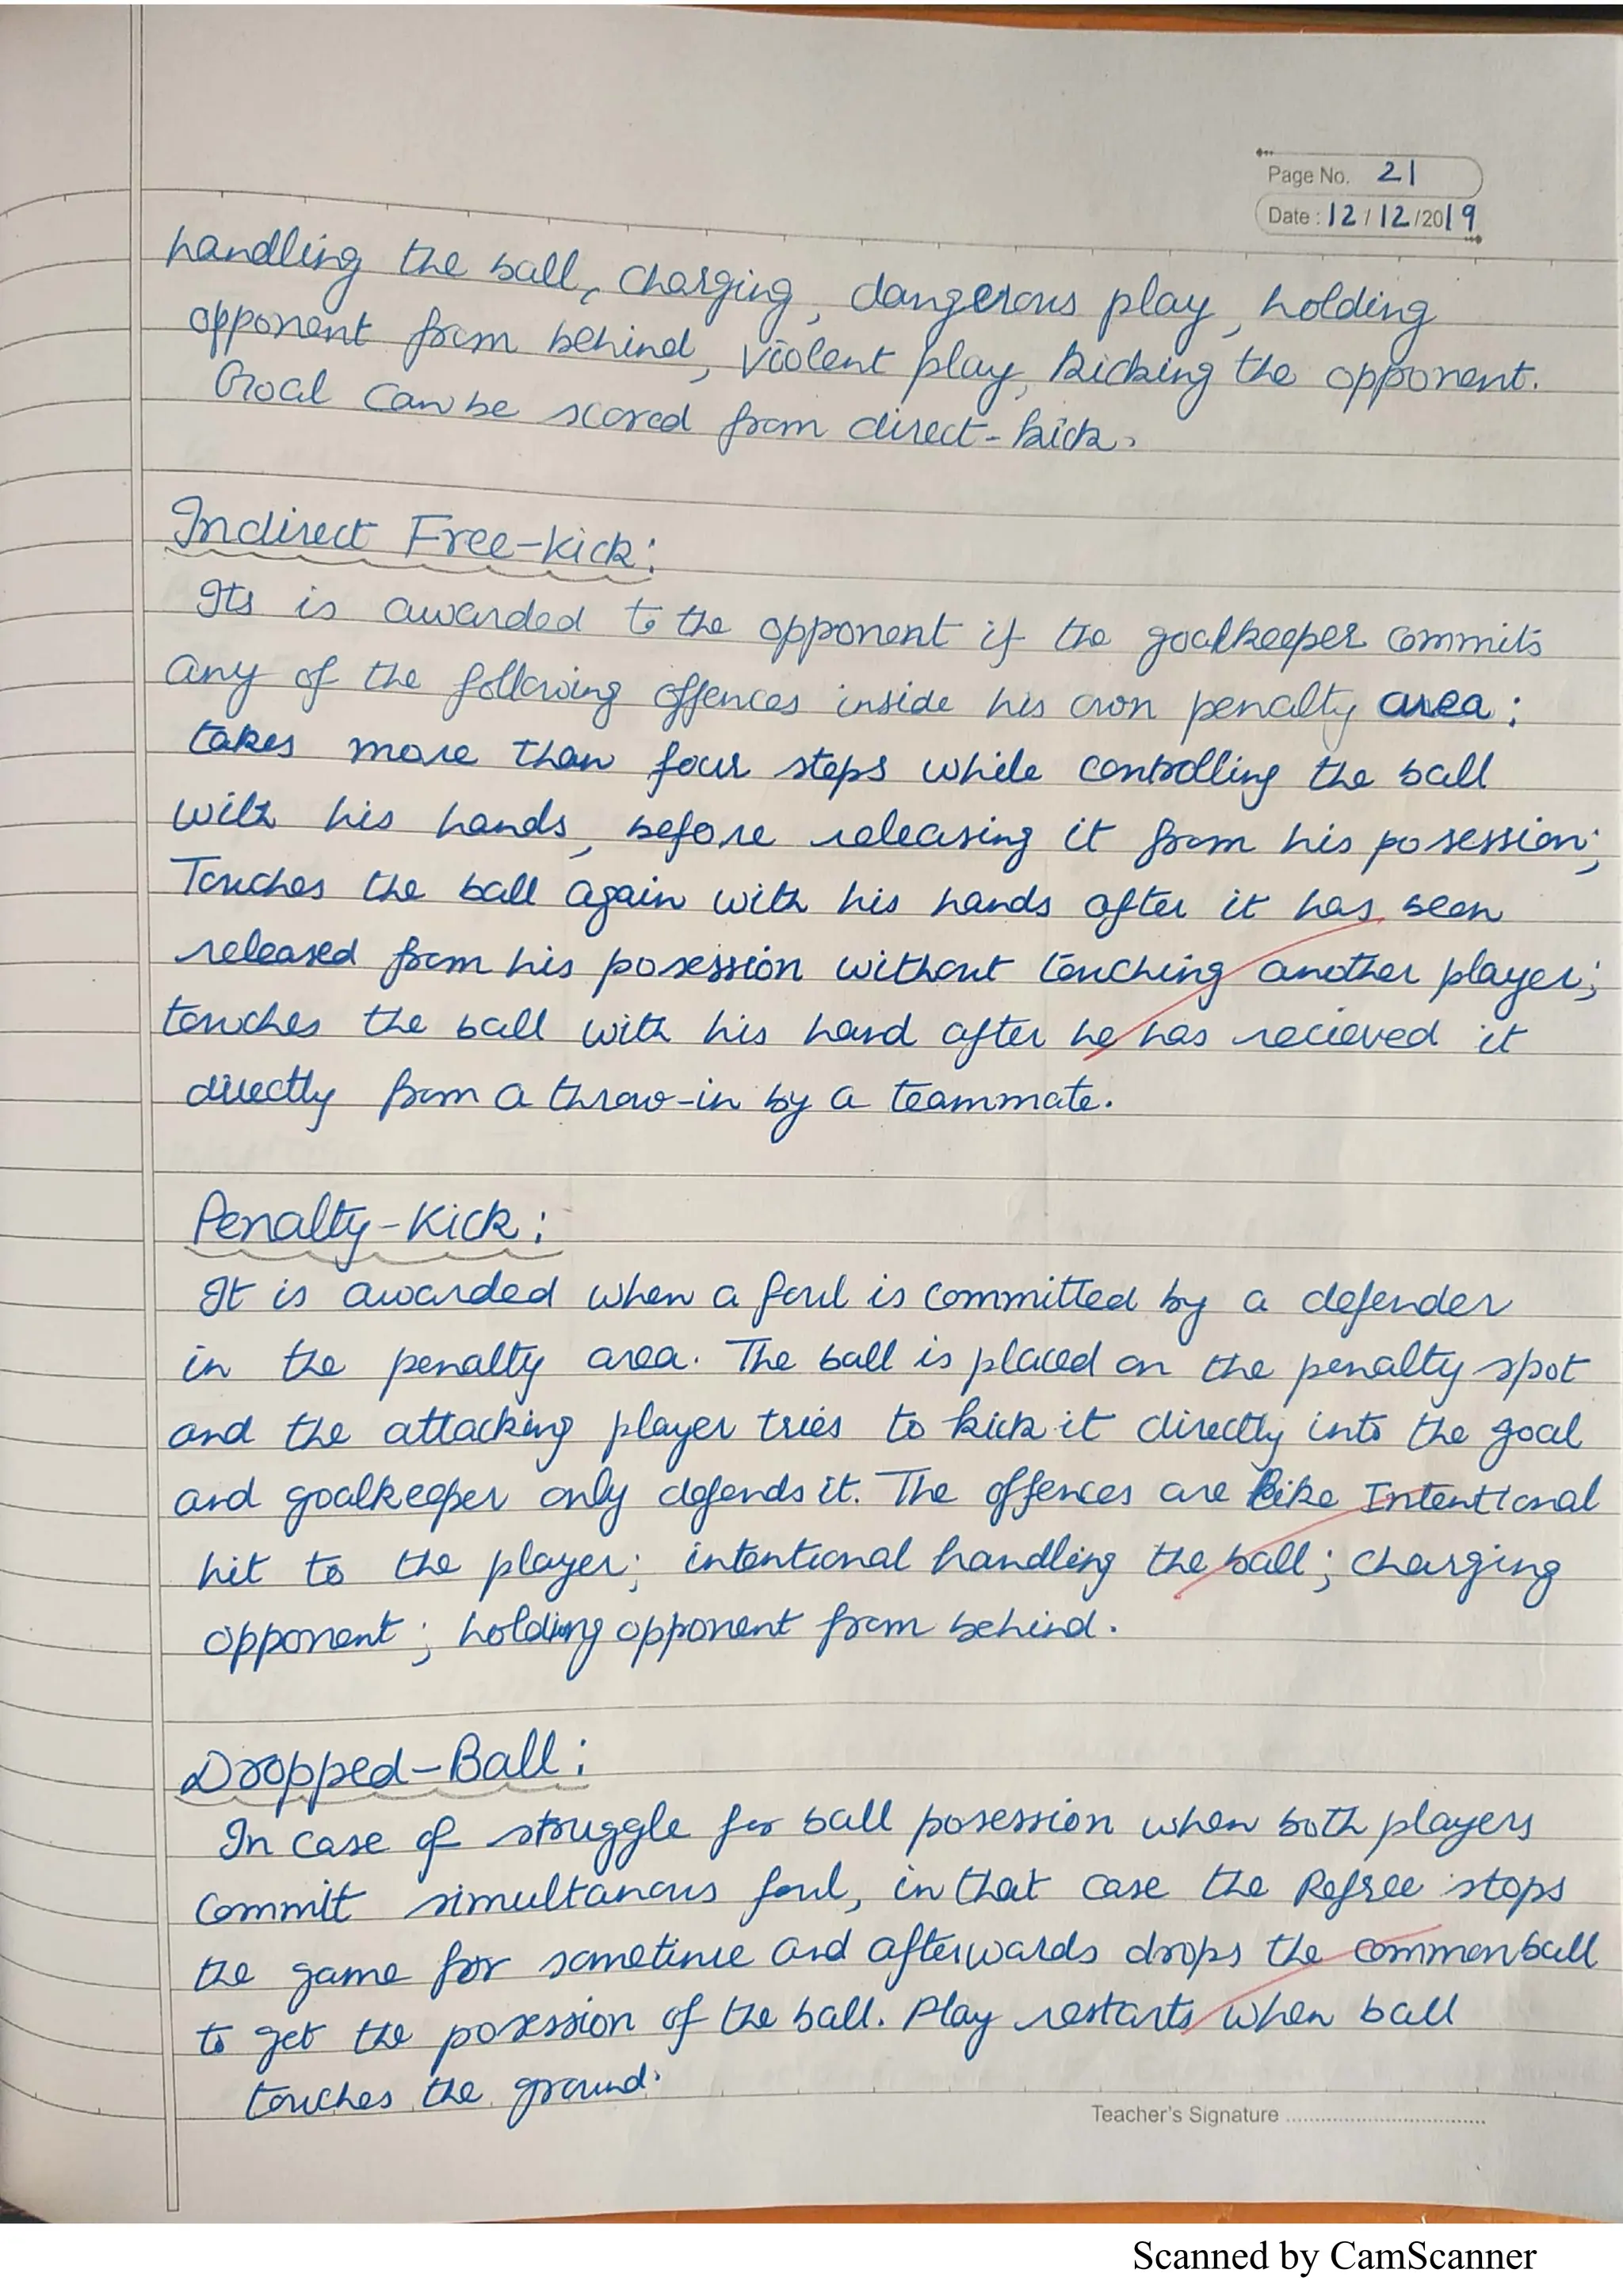 Page No. 21
Date : 12 / 12 /2019
handling the ball, charging, dangerous play, holding
opponent from behind, violent play, kicking the opponent.
Goal can be scored from direct-kick.
Indirect Free-kick:
Its is awarded to the opponent if the goalkeeper commits
any of the following offences inside his own penalty area:
takes more than four steps while controlling the ball
with his hands, before releasing it from his posession;
Touches the ball again with his hands after it has been
released from his posession without touching another player;
touches the ball with his hand after he has recieved it
directly from a throw-in by a teammate.
Penalty-Kick:
It is awarded when a foul is committed by a defender
in the penalty area. The ball is placed on the penalty spot
and the attacking player tries to kick it directly into the goal
and goalkeeper only defends it. The offences are like Intentional
hit to the player; intentional handling the ball; charging
opponent; holding opponent from behind.
Dropped-Ball:
In case of struggle for ball posession when both players
commit simultanous foul, in that case the Refree stops
the game for sometime and afterwards drops the common ball
to get the posession of the ball. Play restarts when ball
touches the ground.
Teacher's Signature
Scanned by CamScanner